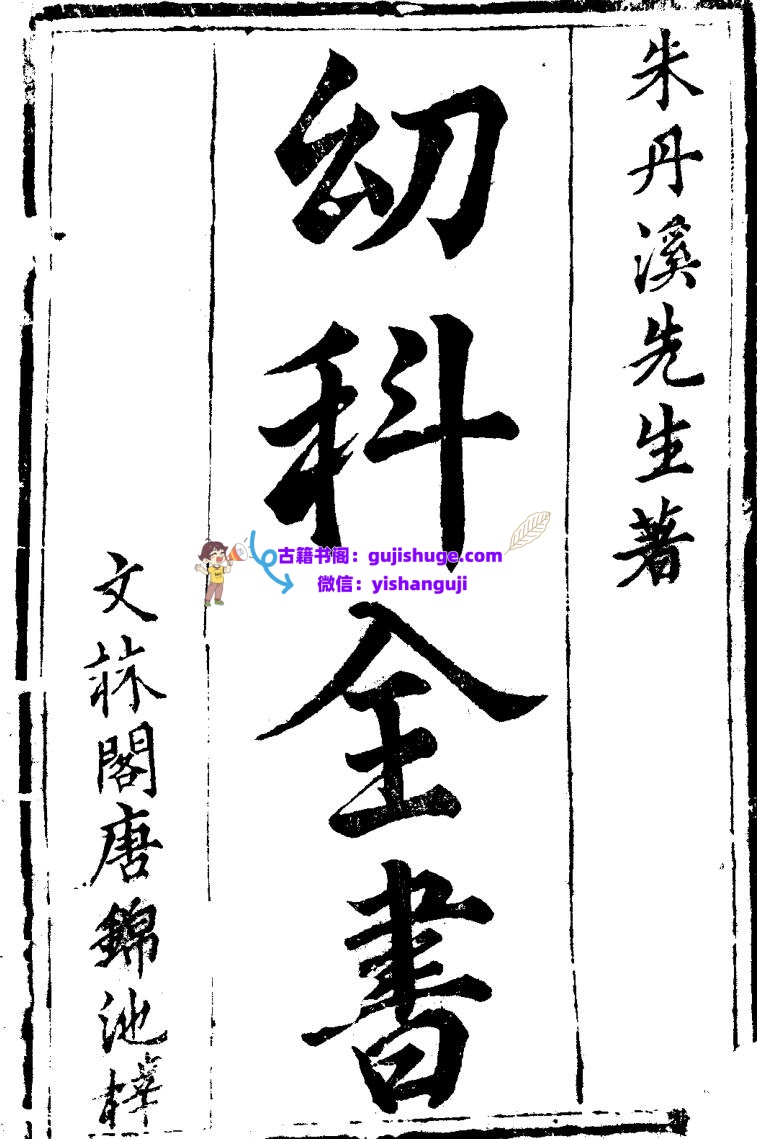 朱丹溪先生著
幼科全書
文林閣唐錦池梓
古籍书阁：gujishuge.com
微信：yishanguji